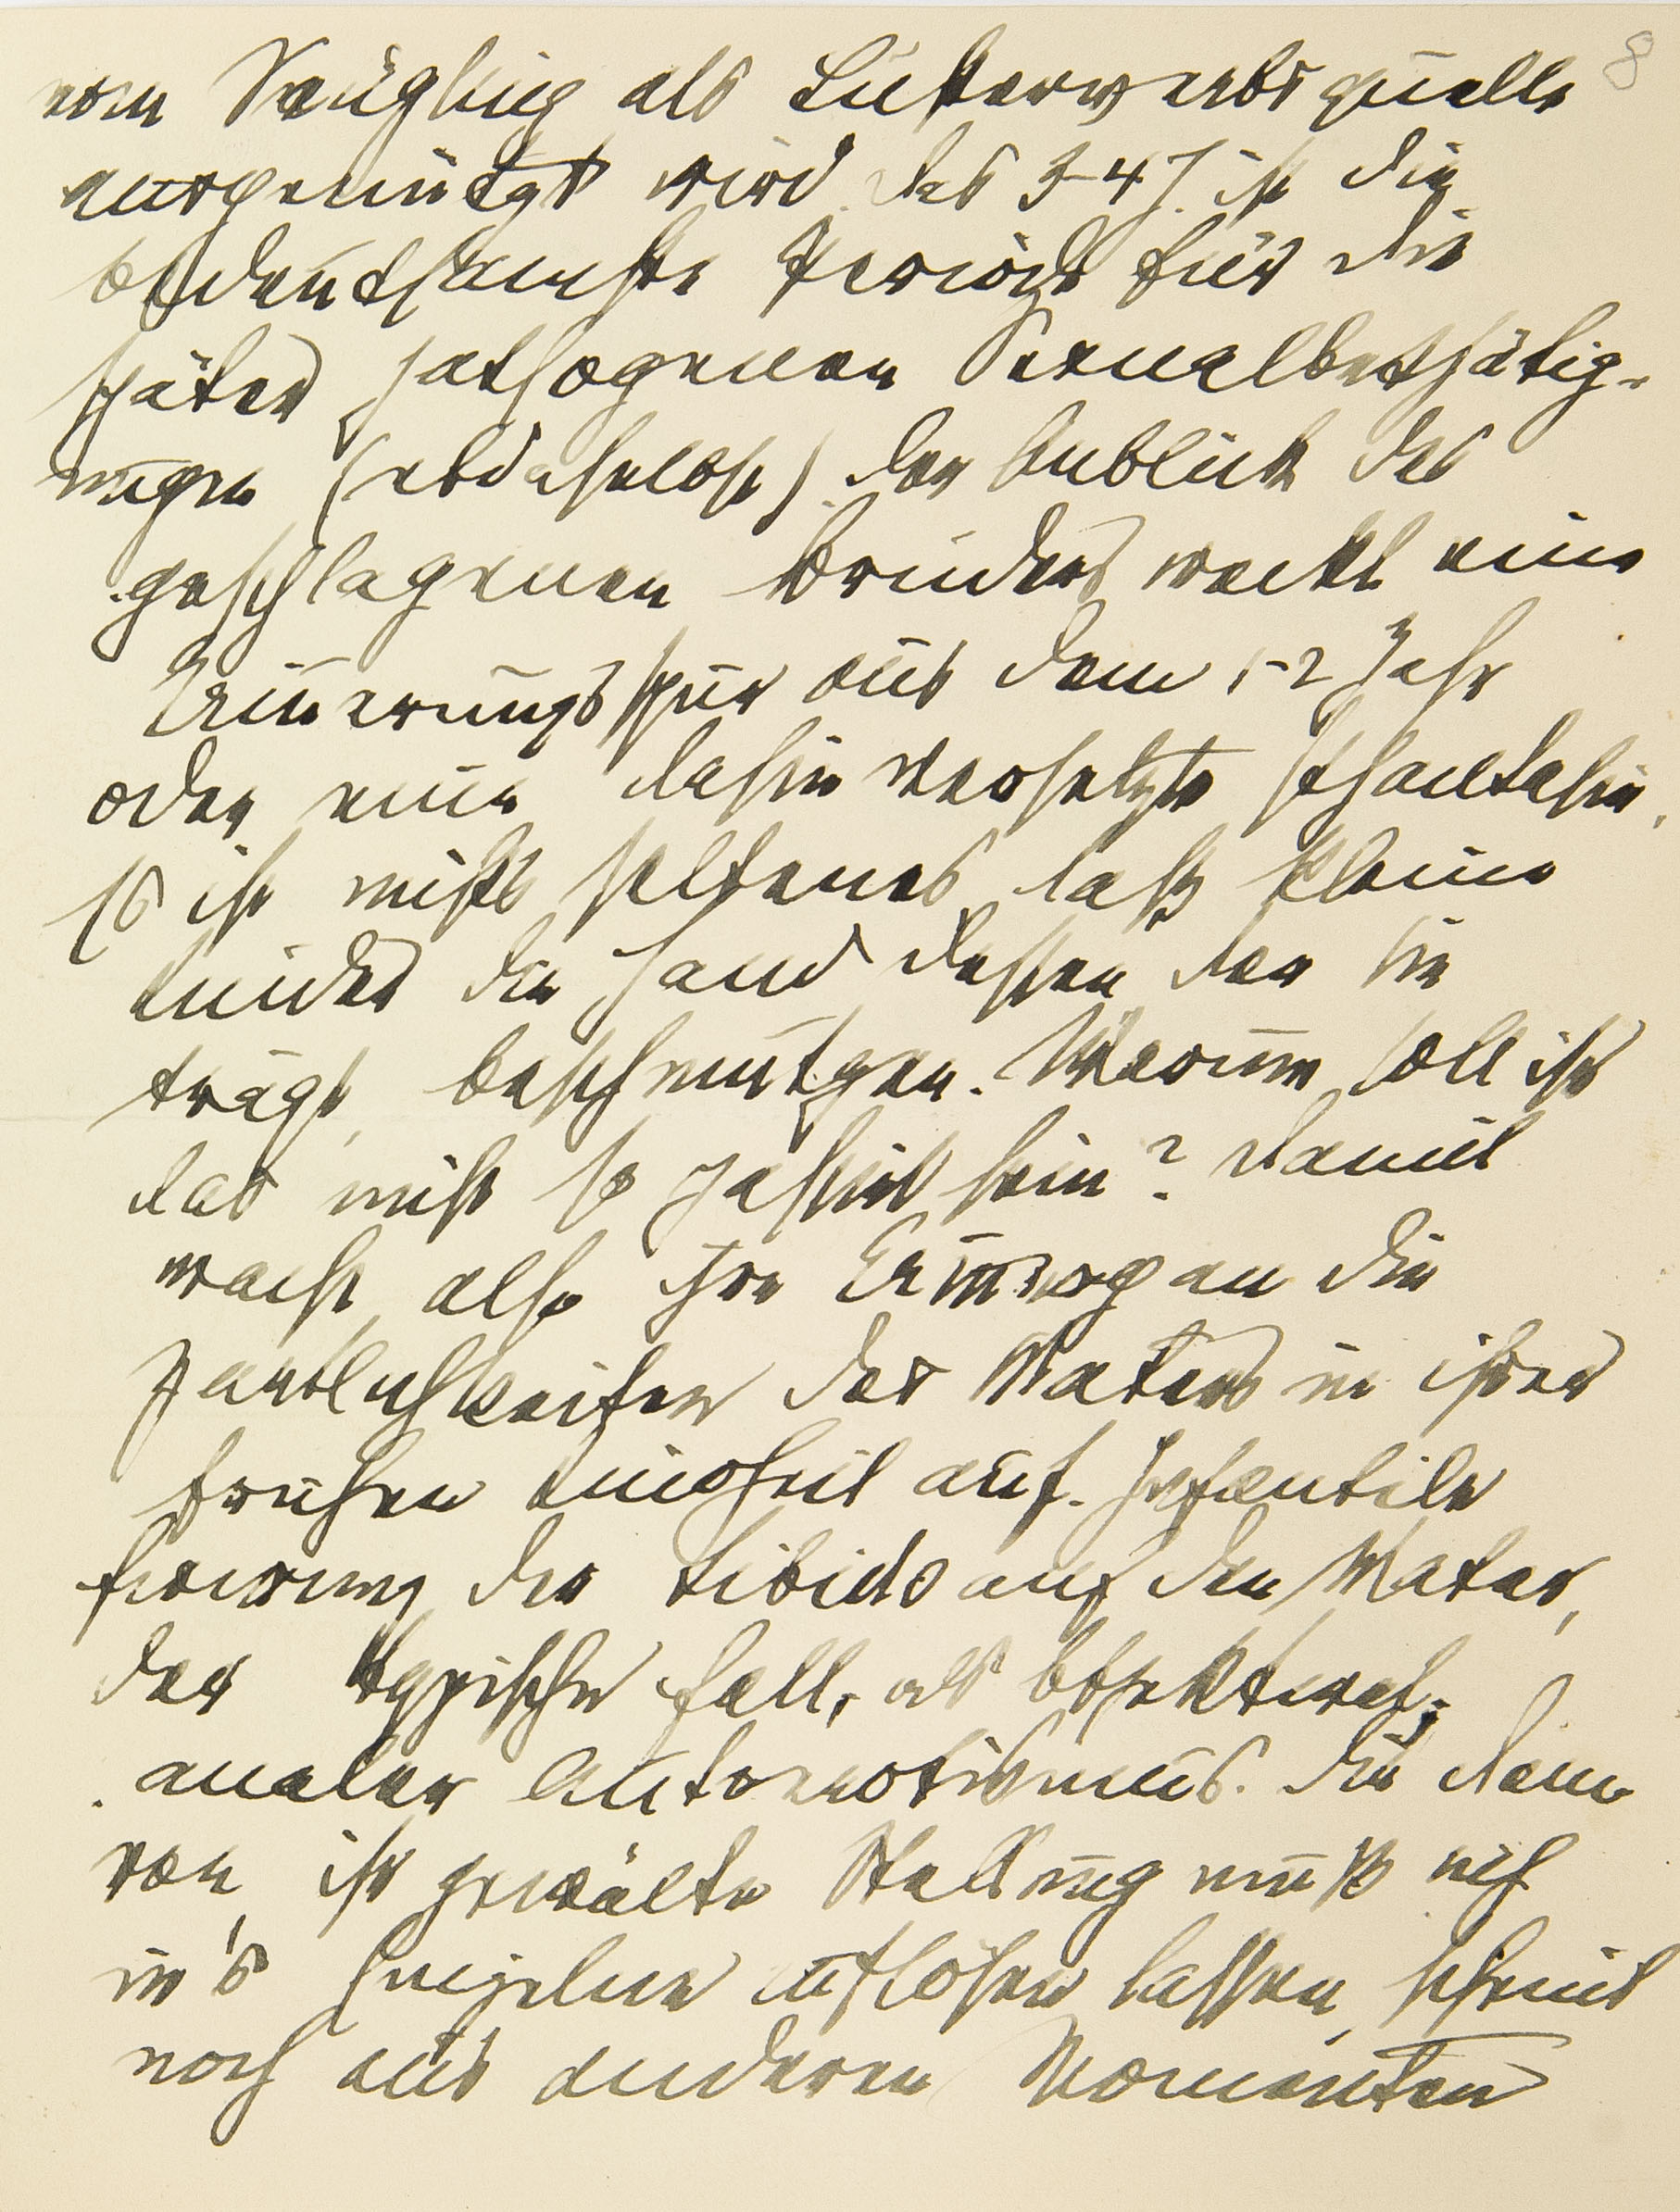 8
vom Säugling als Lusterwerbsquelle
ausgenützt wird. Das 3-4 J. ist die
bedeutsamste Periode für die
später pathogenen Sexualbethätig-
ungen (ebdaselbst). Der Anblick des
geschlagenen Bruders weckt eine
Erinnerungsspur aus dem 1-2 Jahr
oder eine dahin versetzte Phantasie.
Es ist nichts seltenes, daß kleine
Kinder die Hand dessen der sie
trägt, beschmutzen. Warum soll ihr
das nicht so passiert sein? Damit
wacht also ihre Erinnerg an die
Zärtlichkeiten des Vaters in ihrer
frühen Kindheit auf. Infantile
Fixirung der Libido auf den Vater,
der typische Fall, als Objektwahl;
analer Autoerotismus. Die dann
von ihr gewälte Stellung muß sich
in's Einzelne auflösen lassen, scheint
noch aus anderen Momenten